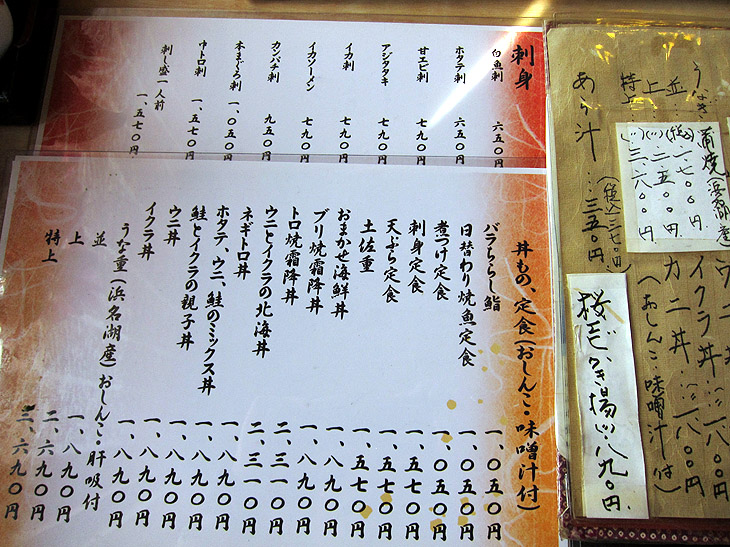 刺身
白魚刺 六五〇円
ホタテ刺 六五〇円
甘エビ刺 七九〇円
アジタタキ 七九〇円
イカ刺 七九〇円
イカソーメン 七九〇円
カンパチ刺 九五〇円
本まぐろ刺 一、〇五〇円
中トロ刺 一、五七〇円
刺し盛一人前 一、五七〇円
丼もの、定食(おしんこ・味噌汁付)
バラちらし鮨 一、〇五〇円
日替わり焼魚定食 一、〇五〇円
煮つけ定食 一、〇五〇円
刺身定食 一、五七〇円
天ぷら定食 一、五七〇円
土佐重 一、五七〇円
おまかせ海鮮丼 一、八九〇円
ブリ焼霜降丼 一、八九〇円
トロ焼霜降丼 二、三一〇円
ウニとイクラの北海丼 二、三一〇円
ネギトロ丼 一、八九〇円
ホタテ、ウニ、鮭のミックス丼 一、八九〇円
鮭とイクラの親子丼 一、八九〇円
ウニ丼 一、八九〇円
イクラ丼 一、八九〇円
うな重(浜名湖産)おしんこ・肝吸付
並 一、八九〇円
上 二、六九〇円
特上 三、六九〇円
うなぎ蒲焼(浜名湖産)
並…(税込)一、七〇〇円
上…(〃)二、五〇〇円
特上…(〃)三、六〇〇円
あら汁…三五〇円
(税込三七〇円)
ウニ丼
イクラ丼…一八〇〇円
カニ丼…一八〇〇円
(おしんこ・味噌汁付)
桜エビかき揚…八九〇円